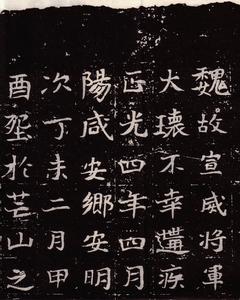 魏故宣威將軍
大壞不幸遘疾
正光四年四月
陽咸安鄉安明
次丁未二月甲
酉塟於芒山之